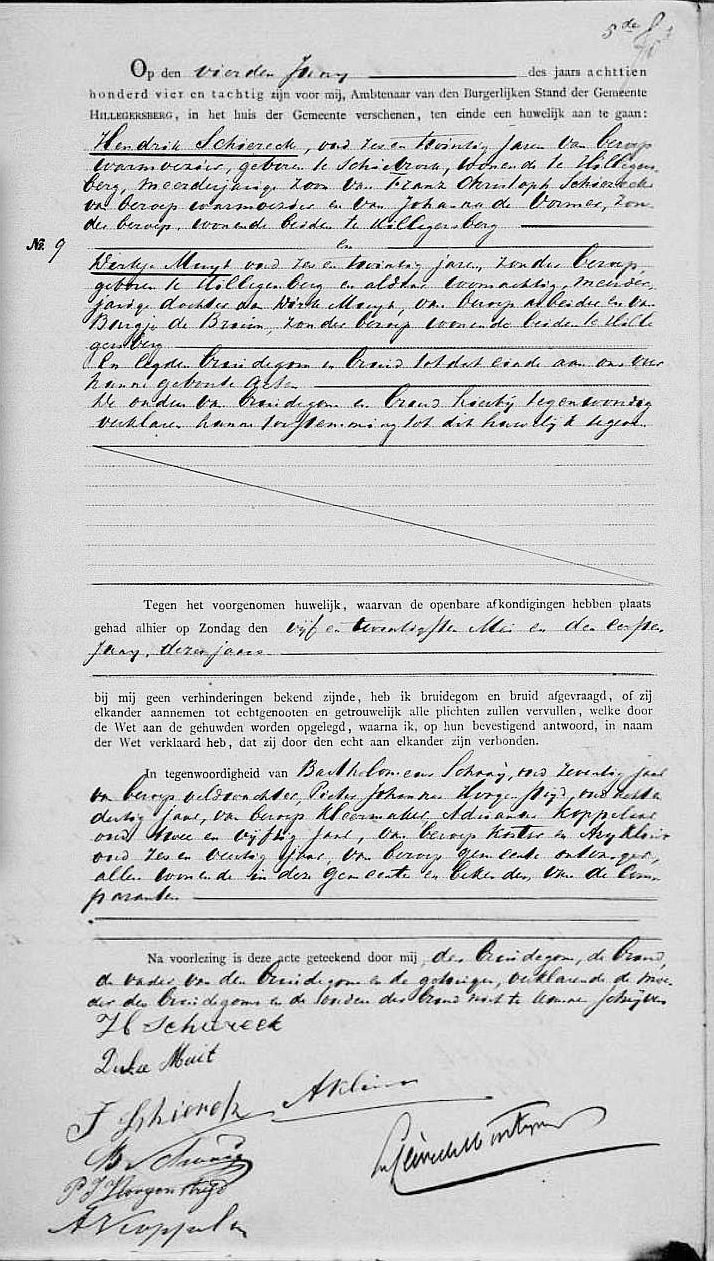 5de
Op den vierden Juny des jaars achttien
honderd vier en tachtig zijn voor mij, Ambtenaar van den Burgerlijken Stand der Gemeente
HILLEGERSBERG, in het huis der Gemeente verschenen, ten einde een huwelijk aan te gaan:
Hendrik Schiereck, oud zes en twintig jaren van beroep
warmoezier, geboren te Schiebroek, wonende te Hillegers-
berg, meerderjarige zoon van Franz Christoph Schiereck
van beroep warmoezier en van Johanna de Vormer, zon-
der beroep, wonende beiden te Hillegersberg
en
No. 9
Dirkje Muyt oud zes en twintig jaren, zonder beroep,
geboren te Hillegersberg en aldaar woonachtig, meerder-
jarige dochter van Dirk Muyt, van beroep arbeider en van
Burgje de Bruin, zonder beroep wonende beiden te Hille
gersberg
En legden Bruidegom en Bruid tot dat einde aan ons over
hunne geboorte acten
De ouders van Bruidegom en Bruid hierbij tegenwoordig
verklaren hunne toestemming tot dit huwelijk te geven
Tegen het voorgenomen huwelijk, waarvan de openbare afkondigingen hebben plaats
gehad alhier op Zondag den vijf en twintigsten Mei en den eersten
Juny, dezes jaars
bij mij geen verhinderingen bekend zijnde, heb ik bruidegom en bruid afgevraagd, of zij
elkander aannemen tot echtgenooten en getrouwelijk alle plichten zullen vervullen, welke door
de Wet aan de gehuwden worden opgelegd, waarna ik, op hun bevestigend antwoord, in naam
der Wet verklaard heb, dat zij door den echt aan elkander zijn verbonden.
In tegenwoordigheid van Bartholomeus Schraag, oud zeventig jaar
van beroep veldwachter, Pieter Johannes Hoogenstrijd, oud
dertig jaar, van beroep kleermaker, Adrianus Koppelaar
oud twee en vijftig jaar, van beroep koster en Ary Klein
oud zes en veertig jaar, van beroep gemeente ontvanger,
allen wonende in deze gemeente en bekenden van de Com-
paranten
Na voorlezing is deze acte geteekend door mij, den Bruidegom, de Bruid,
de vader van den Bruidegom en de getuigen, verklarende de moe-
der des Bruidegoms en de ouders der Bruid niet te kunnen schrijven
H Schiereck
Dirkje Muit
F Schiereck A Klein
B Schraag
P J Hoogenstrijd
A Koppelaar